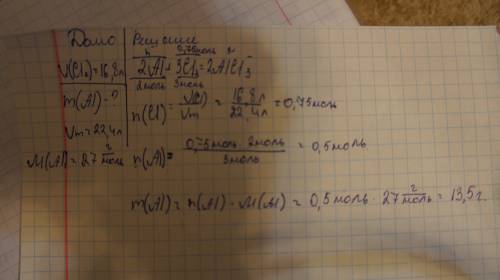 Дано
V(Cl₂)=16,8л
m(Al)-?
Vm=22,4л
M(Al)=27 г/моль
Решение
n 0,75моль
2Al+3Cl₂=2AlCl₃
2моль 3моль
n(Cl)= V(Cl)/Vm = 16,8л/22,4л =0,75моль
n(Al)= 0,75моль·2моль/3моль = 0,5моль
m(Al)=n(Al)·M(Al)= 0,5моль·27 г/моль = 13,5г.